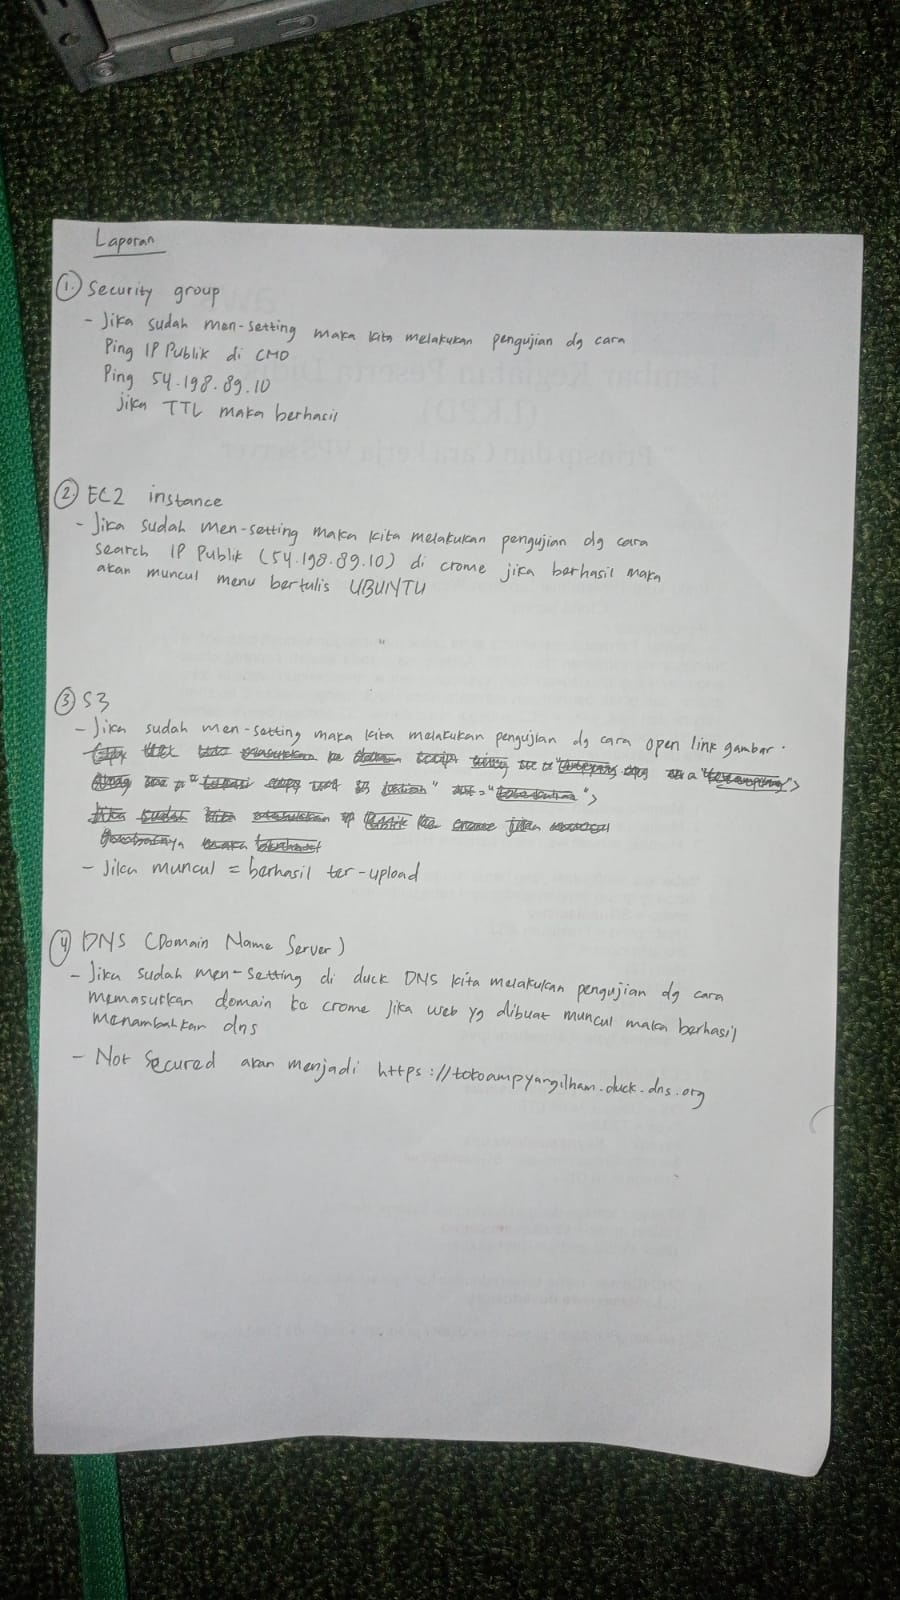 Laporan
1. Security group
- Jika sudah men-setting maka kita melakukan pengujian dg cara
Ping IP Publik di CMD
Ping 54.198.89.10
jika TTL maka berhasil
2. EC2 instance
- Jika sudah men-setting maka kita melakukan pengujian dg cara
search IP Publik (54.198.89.10) di crome jika berhasil maka
akan muncul menu bertulis UBUNTU
3 S3
- Jika sudah men-setting maka kita melakukan pengujian dg cara open link gambar.
- Jika muncul = berhasil ter-upload
4 DNS (Domain Name Server)
- Jika sudah men-setting di duck DNS kita melakukan pengujian dg cara
memasukkan domain ke crome jika web yg dibuat muncul maka berhasil
menambahkan dns
- Not Secured akan menjadi https://tokoampyangilham.duck.dns.org